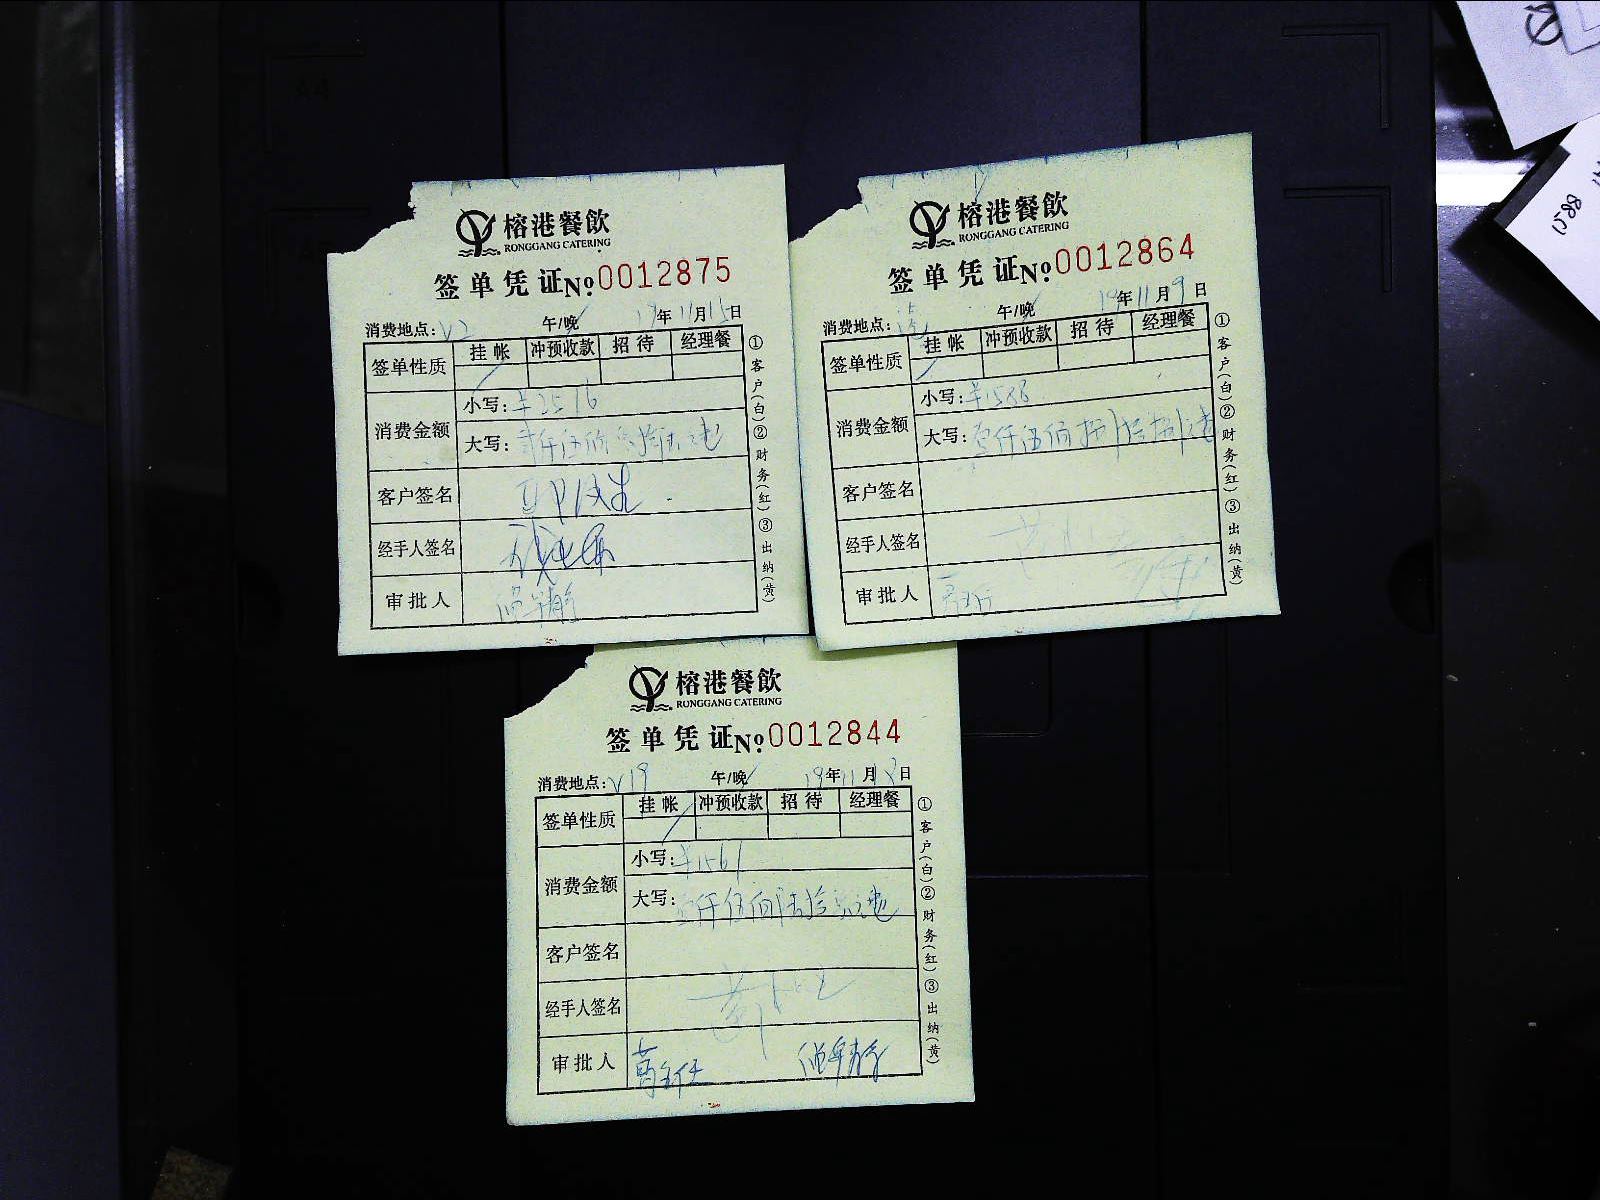 榕港餐飲
RONGGANG CATERING
签单凭证№0012875
消费地点：V2 午/晚 19年11月15日
签单性质 挂帐 冲预收款 招待 经理餐
消费金额
小写：¥2516
大写：贰仟伍佰壹拾陆元
客户签名
经手人签名
审批人
①客户(白)②财务(红)③出纳(黄)
榕港餐飲
RONGGANG CATERING
签单凭证№0012864
消费地点： 午/晚 19年11月9日
签单性质 挂帐 冲预收款 招待 经理餐
消费金额
小写：¥1588
大写：壹仟伍佰捌拾捌元
客户签名
经手人签名
审批人
①客户(白)②财务(红)③出纳(黄)
榕港餐飲
RONGGANG CATERING
签单凭证№0012844
消费地点：V19 午/晚 19年11月 日
签单性质 挂帐 冲预收款 招待 经理餐
消费金额
小写：¥1561
大写：壹仟伍佰陆拾壹元
客户签名
经手人签名
审批人
①客户(白)②财务(红)③出纳(黄)